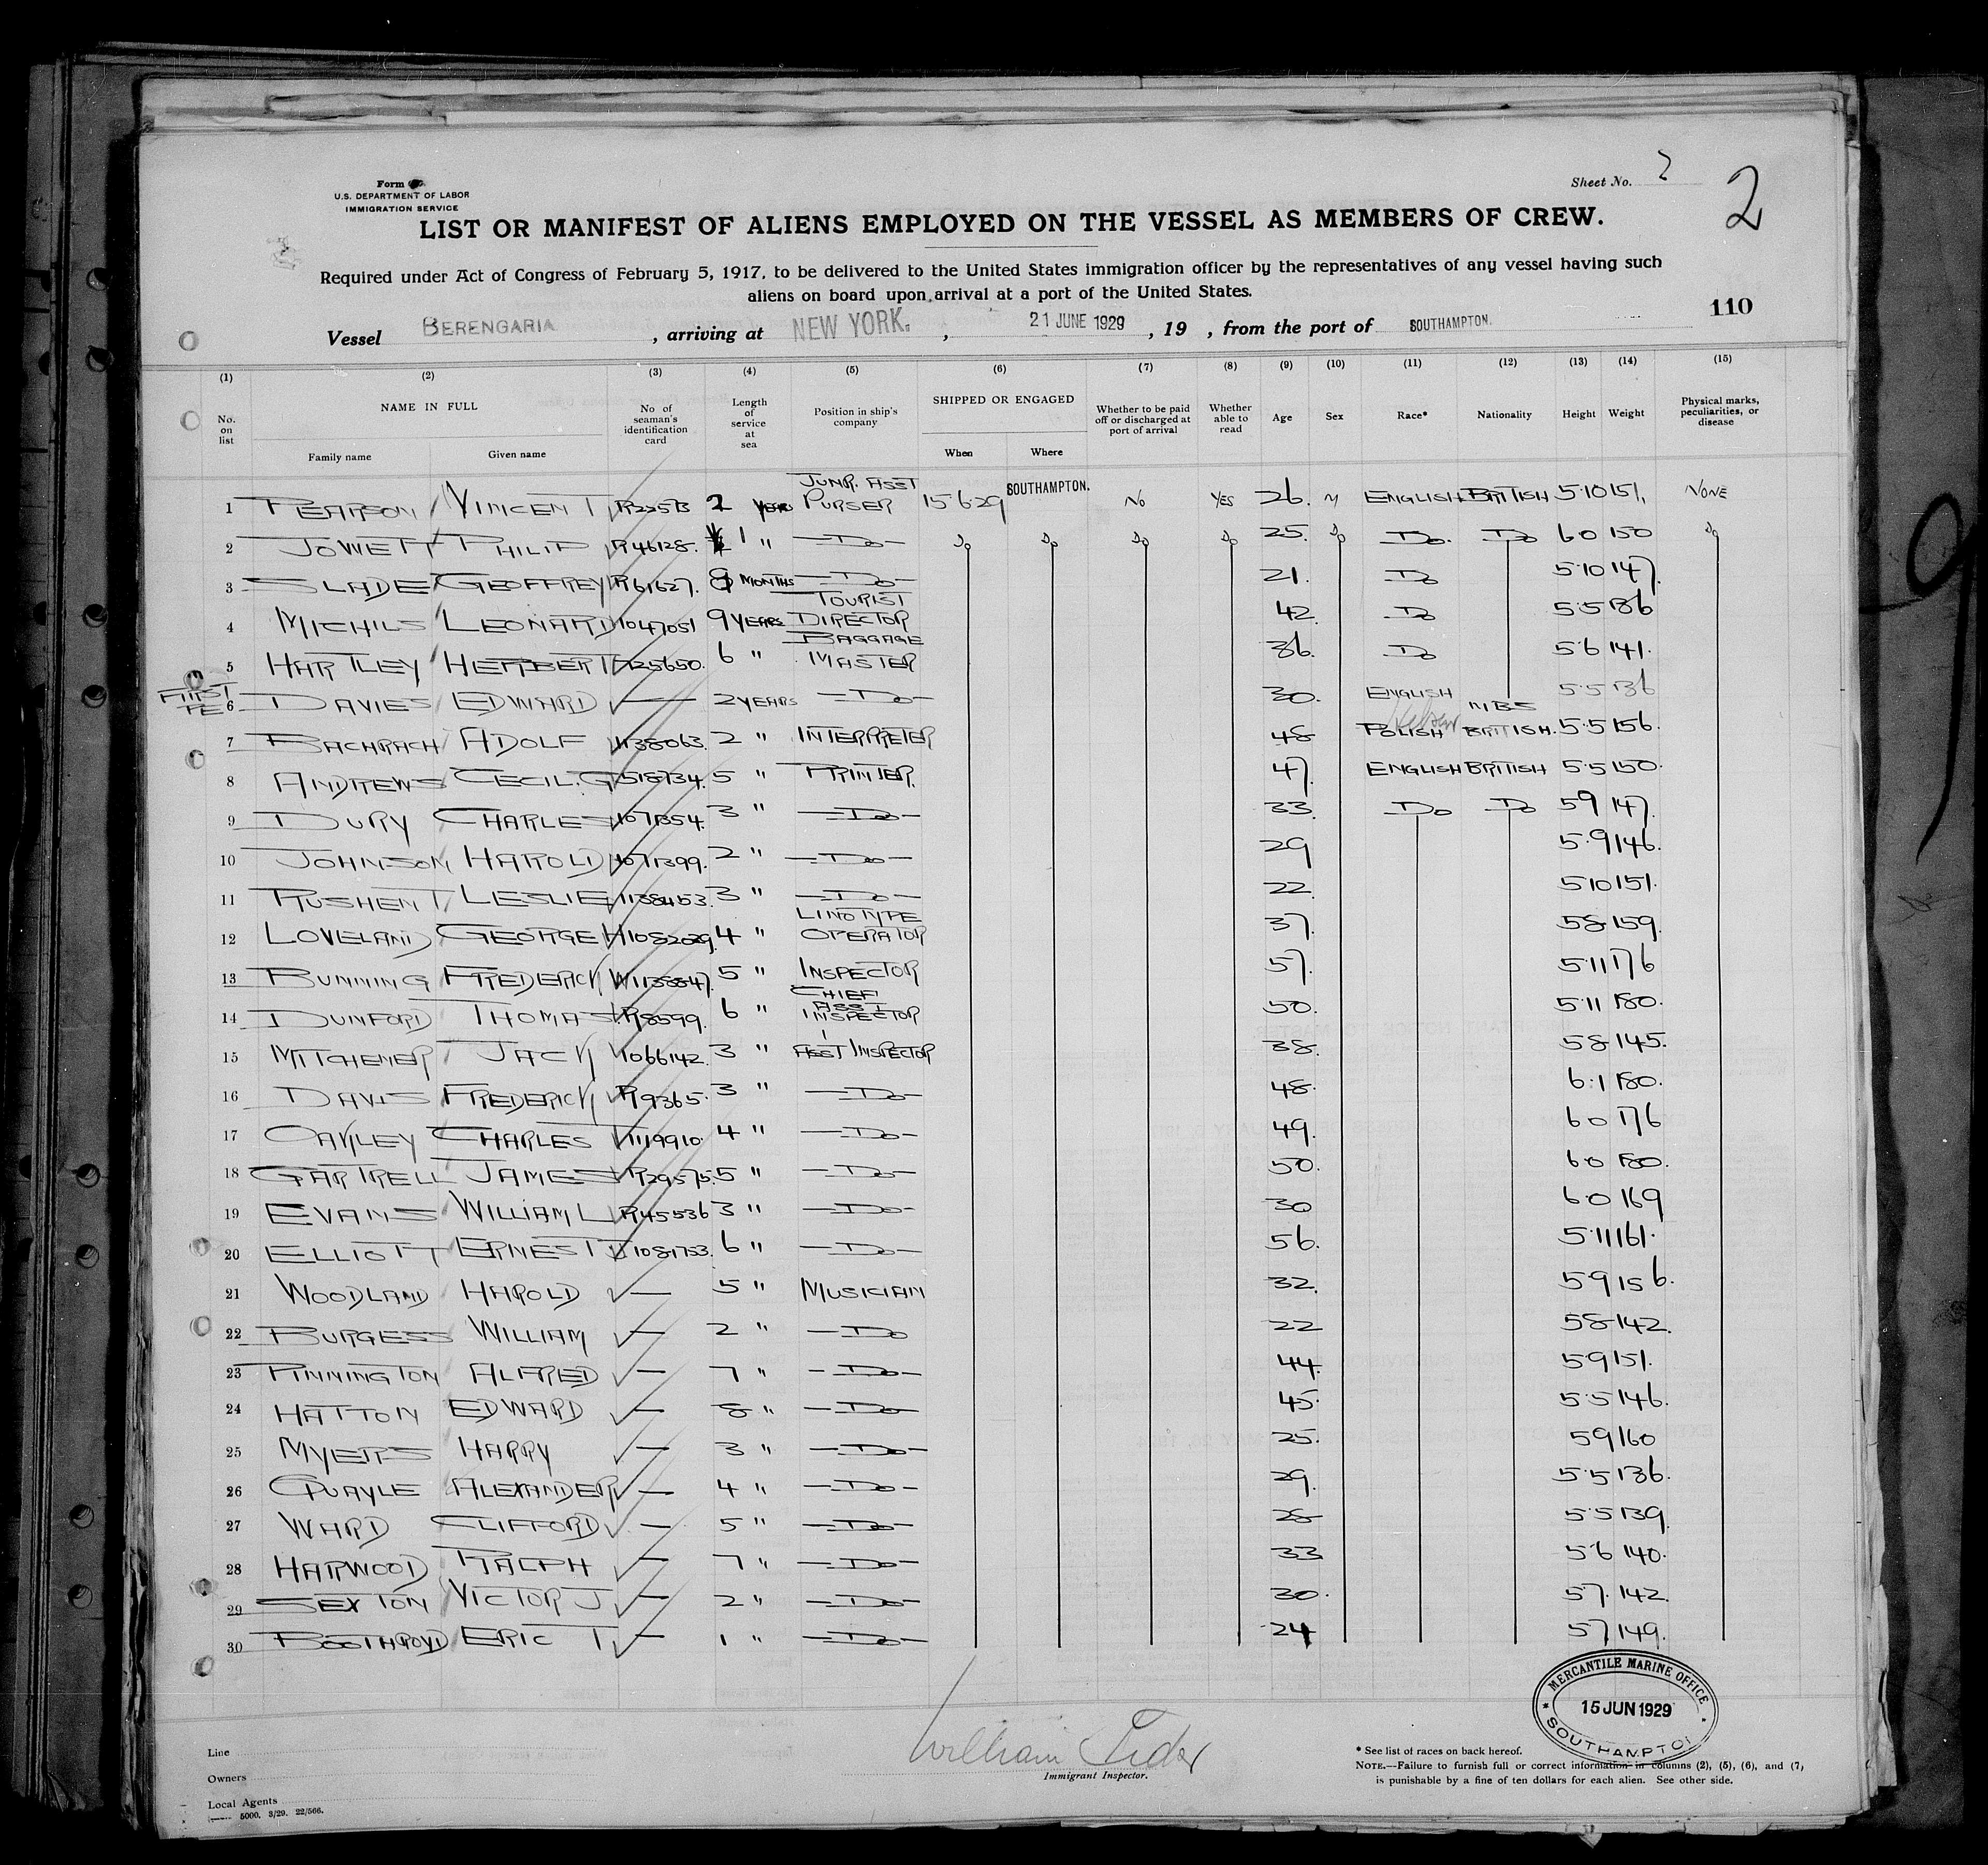 Form
U.S. DEPARTMENT OF LABOR
IMMIGRATION SERVICE
Sheet No. 2
2
LIST OR MANIFEST OF ALIENS EMPLOYED ON THE VESSEL AS MEMBERS OF CREW.
Required under Act of Congress of February 5, 1917, to be delivered to the United States immigration officer by the representatives of any vessel having such
aliens on board upon arrival at a port of the United States.
110
Vessel BERENGARIA , arriving at NEW YORK. , 21 JUNE 1929 , 19 , from the port of SOUTHAMPTON.
(1) (2) (3) (4) (5) (6) (7) (8) (9) (10) (11) (12) (13) (14) (15)
No. on list NAME IN FULL Family name Given name No of seaman's identification card Length of service at sea Position in ship's company SHIPPED OR ENGAGED When Where Whether to be paid off or discharged at port of arrival Whether able to read Age Sex Race* Nationality Height Weight Physical marks, peculiarities, or disease
1 PEARSON VINCENT R22573 2 YEARS JUNR. ASST PURSER 15·6·29 SOUTHAMPTON. NO YES 26. M ENGLISH BRITISH 5·10 151. NONE
2 JOWETT PHILIP R46128. 1 " —Do— Do Do Do Do 25. Do Do. Do 6 0 150 Do
3 SLADE GEOFFREY R61627. 9 MONTHS —Do— 21. Do 5·10 147.
4 MICHILS LEONARD 1047051 9 YEARS TOURIST DIRECTOR 42. Do 5·5 136
5 HARTLEY HERBERT 725650. 6 " BAGGAGE MASTER 36. Do 5·6 141.
FIRST
6 DAVIES EDWARD — 2 YEARS —Do— 30. ENGLISH 5·5 136
7 BACHRACH ADOLF 1138063. 2 " INTERPRETER 48 POLISH Hebrew BRITISH. 5·5 156.
8 ANDREWS CECIL. G 518734. 5 " PRINTER. 47. ENGLISH BRITISH 5·5 150.
9 DURY CHARLES 1071354. 3 " —Do— 33. Do Do 5 9 147.
10 JOHNSON HAROLD 1071399. 2 " —Do— 29 5·9 146.
11 RUSHENT LESLIE 1138453. 3 " —Do— 22. 5 10 151.
12 LOVELAND GEORGE H 1082029. 4 " LINOTYPE OPERATOR 37. 5 8 159.
13 BUNNING FREDERICK W 1138847. 5 " INSPECTOR 57. 5·11 176
14 DUNFORD THOMAS R8599. 6 " CHIEF ASST INSPECTOR 50. 5·11 180.
15 MITCHENER JACK 1066142. 3 " ASST INSPECTOR 38. 5 8 145.
16 DAVIS FREDERICK R9365. 3 " —Do— 48. 6·1 180.
17 OAKLEY CHARLES 1119910. 4 " —Do— 49. 6 0 176
18 GARTRELL JAMES R29575. 5 " —Do— 50. 6 0 180.
19 EVANS WILLIAM L R45536 3 " —Do— 30 6 0 169
20 ELLIOTT ERNEST J 1081753. 6 " —Do— 56. 5·11 161.
21 WOODLAND HAROLD — 5 " MUSICIAN 32. 5 9 156.
22 BURGESS WILLIAM — 2 " —Do 22 5 8 142.
23 PINNINGTON ALFRED — 7 " —Do— 44. 5 9 151.
24 HATTON EDWARD — 8 " —Do— 45. 5·5 146.
25 MYERS HARRY — 3 " —Do— 25. 5 9 160
26 QUAYLE ALEXANDER — 4 " —Do— 29. 5·5 136.
27 WARD CLIFFORD — 5 " —Do— 28 5·5 139.
28 HARWOOD RALPH — 7 " —Do— 33 5·6 140.
29 SEXTON VICTOR J — 2 " —Do— 30. 5 7. 142.
30 BOOTHROYD ERIC T — 1 " —Do— 24 5 7 149.
MERCANTILE MARINE OFFICE
15 JUN 1929
SOUTHAMPTON
Line
Owners
Local Agents
5000. 3/29. 22/566.
Immigrant Inspector.
* See list of races on back hereof.
NOTE.—Failure to furnish full or correct information in columns (2), (5), (6), and (7)
is punishable by a fine of ten dollars for each alien. See other side.